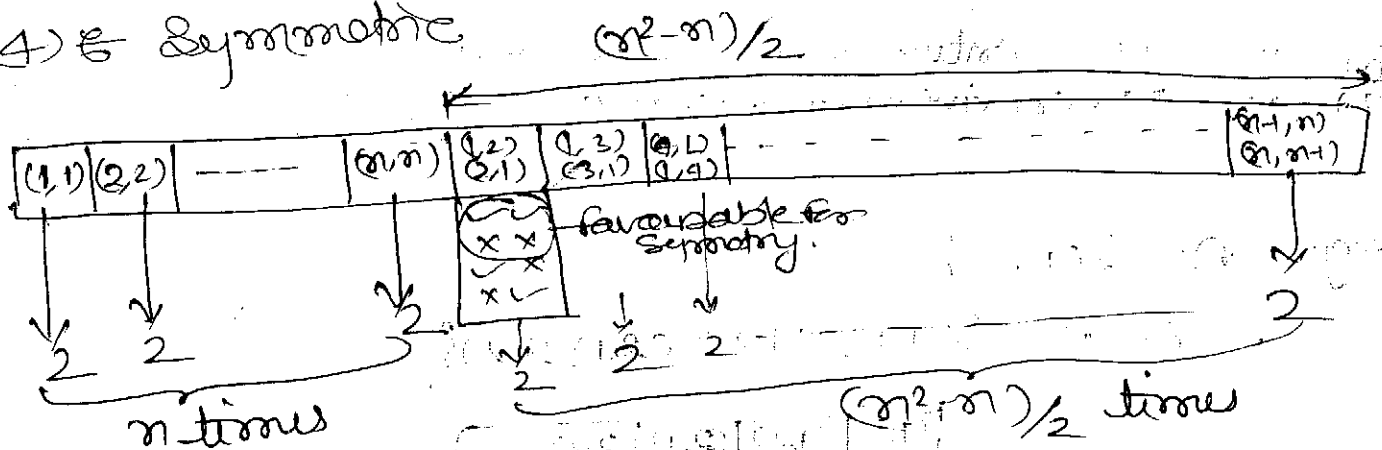 4) Symmetric (n²-n)/2
(1,1) (2,2) ----- (n,n) (1,2) (1,3) (4,1) - - - - - - - - (n-1,n)
(2,1) (3,1) (1,4) (n,n-1)
✓ ✓ favourable for
× × Symmetry.
✓ ×
× ✓
2 2 2 2 2 2 2
n times (n²-n)/2 times